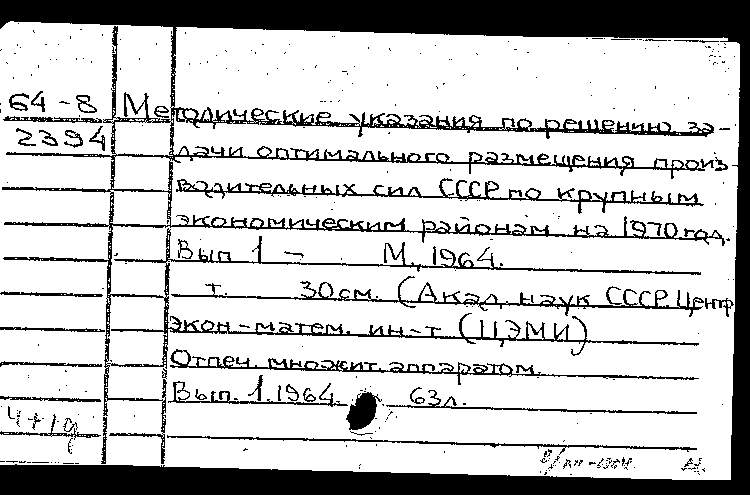 64-8 Методические указания по решению за-
2394 дачи оптимального размещения произ-
водительных сил СССР по крупным
экономическим районам на 1970 год.
Вып 1 – М., 1964.
т. 30см. (Акад. наук СССР. Центр
экон-матем. ин-т (ЦЭМИ)
Отпеч. множит. аппаратом.
Вып. 1. 1964. 63л.
4+1д